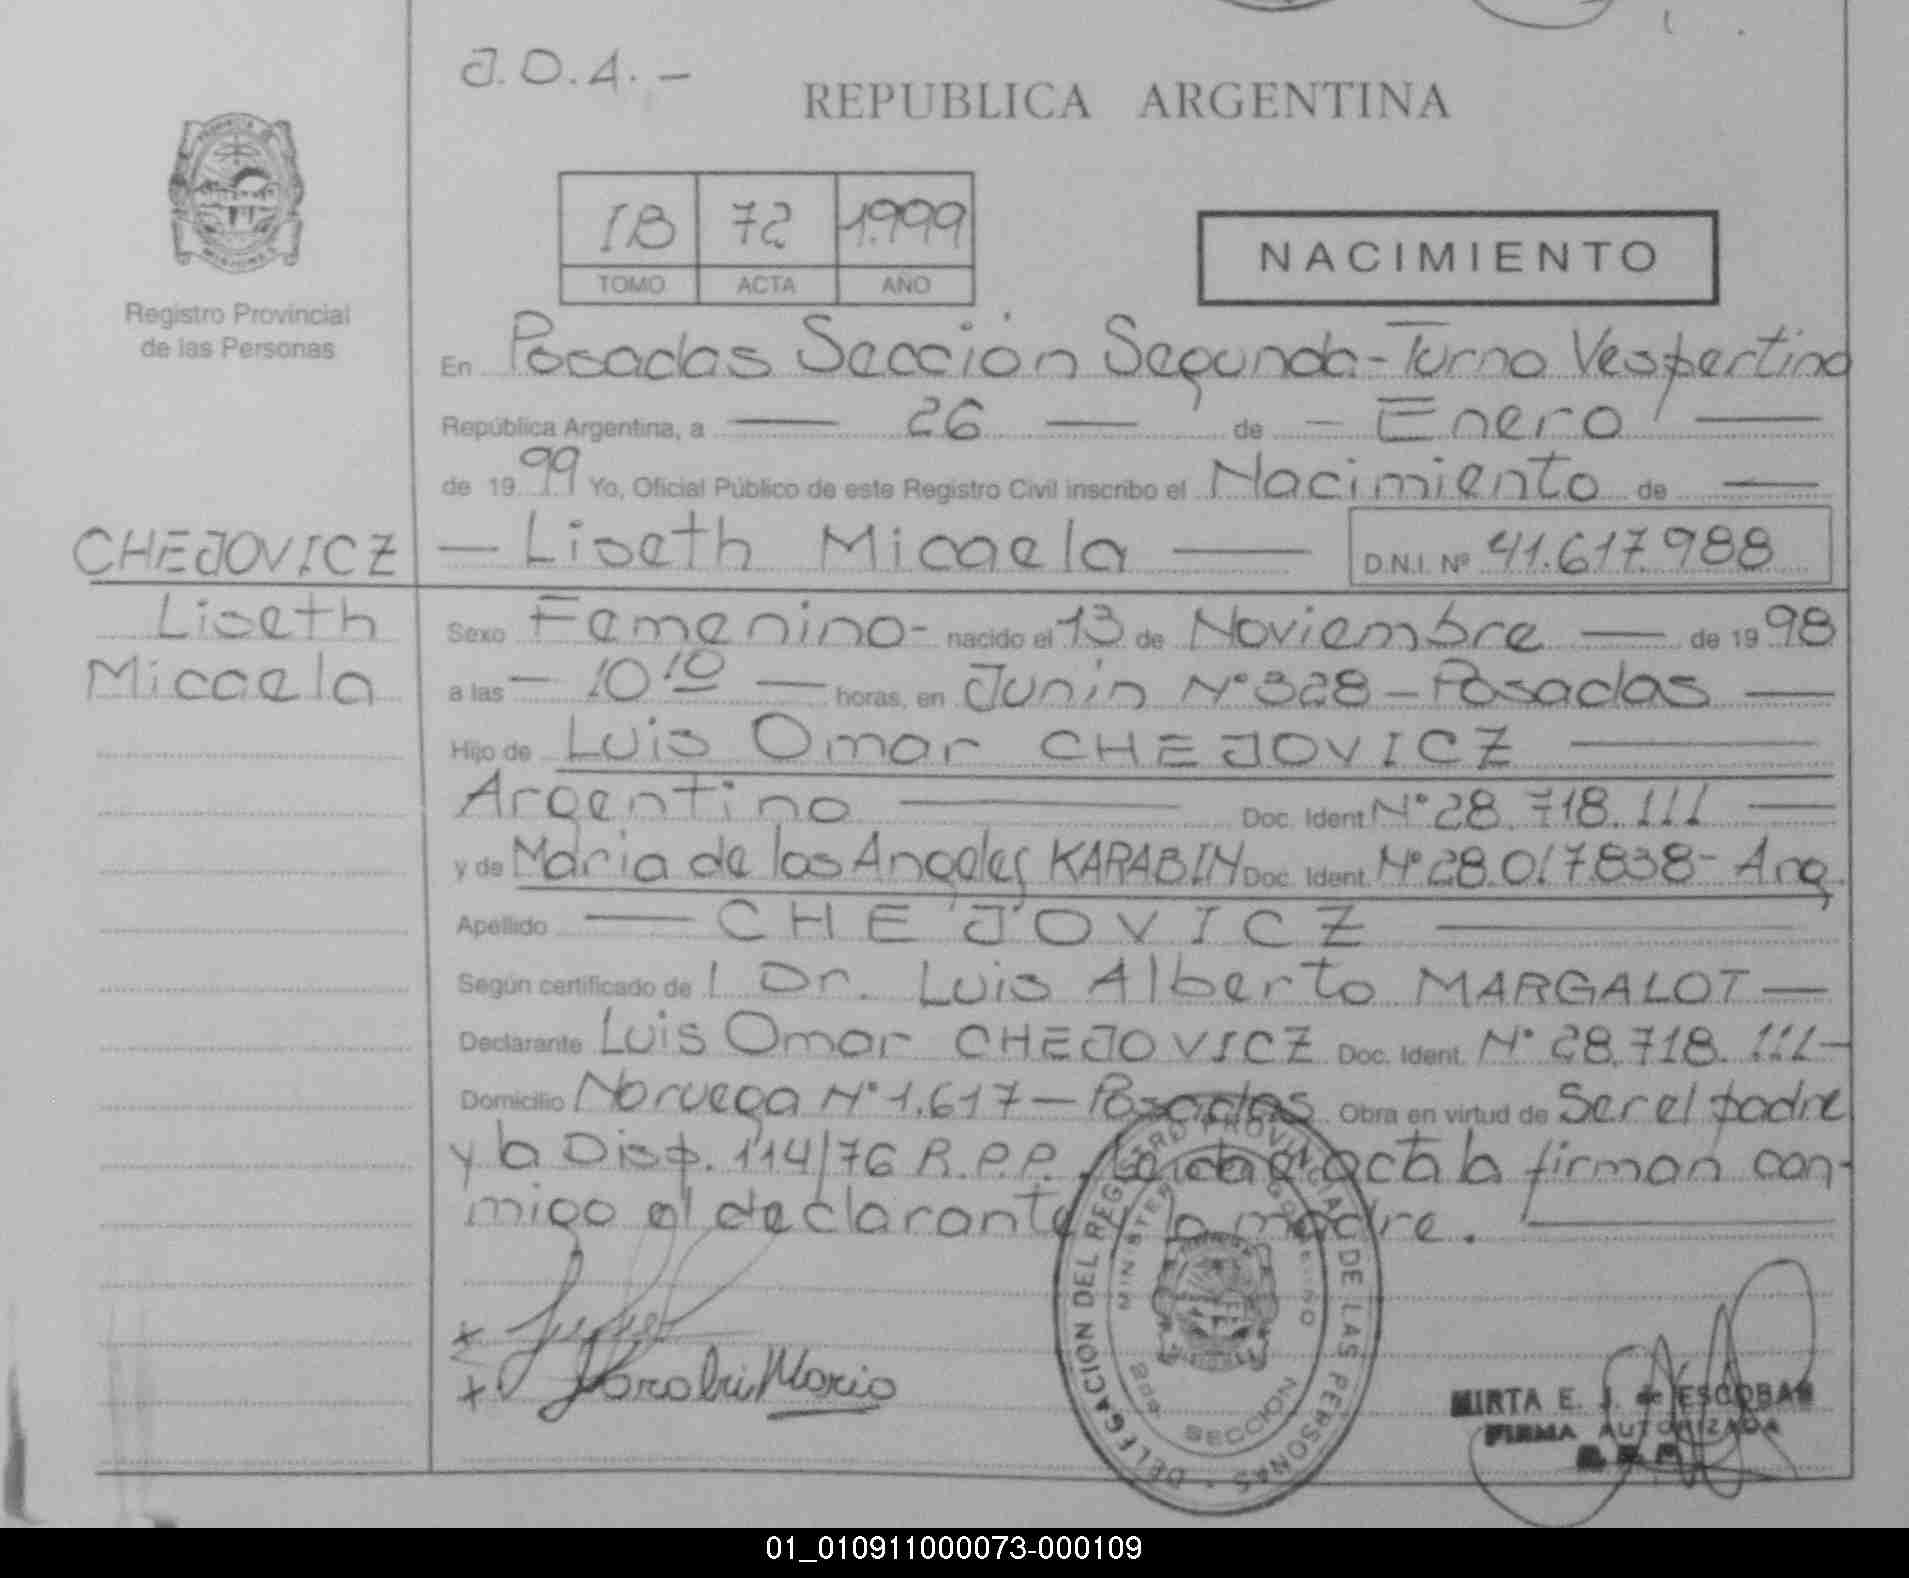 J.O.A.-
REPUBLICA ARGENTINA
IB 72 1.999
TOMO ACTA AÑO
NACIMIENTO
Registro Provincial
de las Personas
En Posadas Sección Segunda - Turno Vespertino
República Argentina, a — 26 — de - Enero —
de 19 99 Yo, Oficial Público de este Registro Civil inscribo el Nacimiento de —
CHEJOVICZ — Liseth Micaela — D.N.I. Nº 41.617.988
Liseth
Micaela
Sexo Femenino - nacido el 13 de Noviembre — de 19 98
a las — 10 10 — horas, en Junín Nº 328 - Posadas —
Hijo de Luis Omar CHEJOVICZ —
Argentino — Doc. Ident. Nº 28.718.111 —
y de María de los Angeles KARABIN Doc. Ident. Nº 28.017.838 - Arg.
Apellido — CHEJOVICZ —
Según certificado de l Dr. Luis Alberto MARGALOT —
Declarante Luis Omar CHEJOVICZ Doc. Ident. Nº 28.718.111 -
Domicilio Noruega Nº 1.617 - Posadas Obra en virtud de Ser el padre
y la Disp. 114/76 R.P.P. Leída el acta la firman con-
migo el declarante y la madre.
DELEGACION DEL REGISTRO PROVINCIAL DE LAS PERSONAS
MINISTERIO GOBIERNO
2da SECCION
María
MIRTA E. J. de ESCOBAR
FIRMA AUTORIZADA
01_010911000073-000109